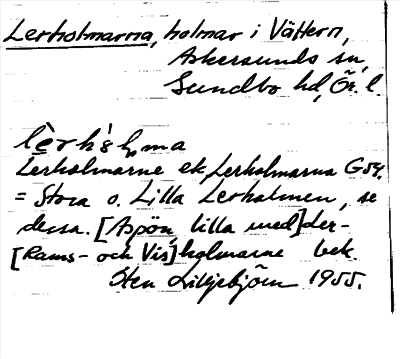 Lerholmarna, holmar i Vättern,
Askersunds sn,
Sundbo hd, Ör. l.
Lerholmarne ek, Lerholmarna G54.
= Stora o. Lilla Lerholmen, se
dessa. [Aspön, lilla med] der-
[Rams- och Vis]holmarne bek.
Sten Liljebjörn 1955.